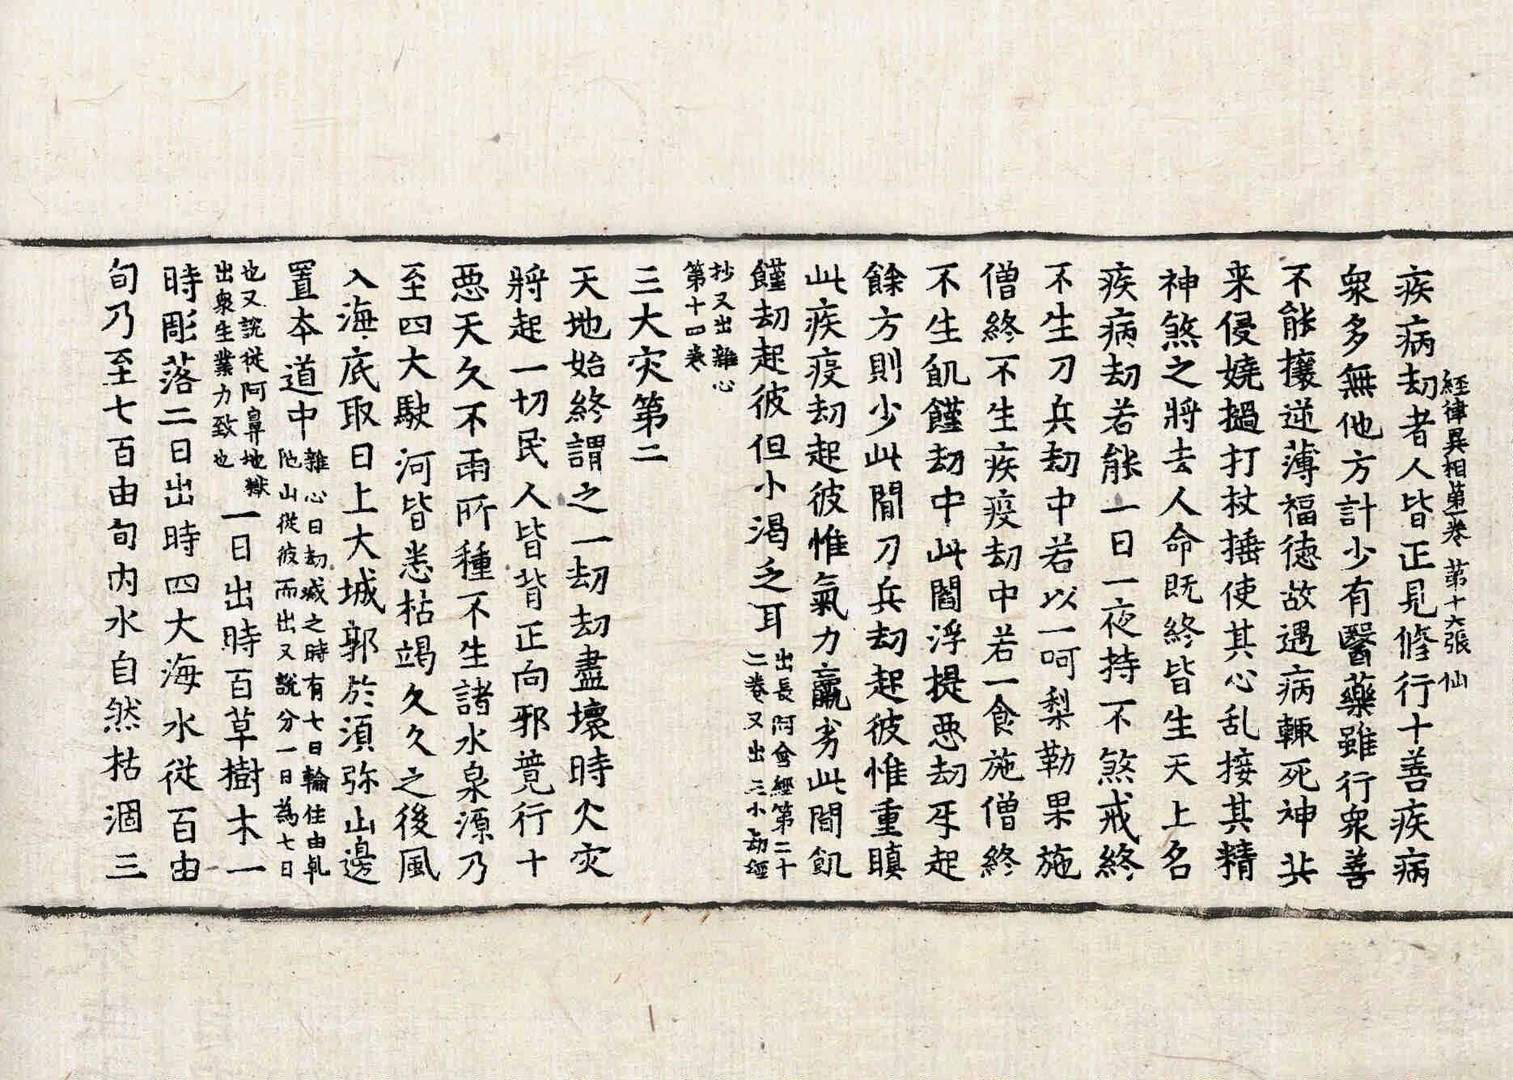 經律異相第一卷　第十六張　仙
疾病劫者人皆正見修行十善疾病
衆多無他方計少有醫藥雖行衆善
不能攘逆薄福徳故遇病輙死神共
来侵嬈撾打杖捶使其心乱接其精
神煞之將去人命既終皆生天上名
疾病劫若能一日一夜持不煞戒終
不生刀兵劫中若以一呵梨勒果施
僧終不生疾疫劫中若一食施僧終
不生飢饉劫中此閻浮提惡劫牙起
餘方則少此閒刀兵劫起彼惟重瞋
此疾疫劫起彼惟氣力羸劣此閒飢
饉劫起彼但小渴乏耳出長阿含經第二十
二卷又出三小劫經
抄又出雜心
第十四卷
三大灾第二
天地始終謂之一劫劫盡壞時火灾
將起一切民人皆背正向邪竟行十
惡天久不雨所種不生諸水泉源乃
至四大駛河皆悉枯竭久久之後風
入海底取日上大城郭於須弥山邊
置本道中雜心曰劫城之時有七日輪住由乹
陁山從彼而出又說分一日為七日
也又說從阿鼻地獄
出衆生業力致也
一日出時百草樹木一
時彫落二日出時四大海水從百由
旬乃至七百由旬内水自然枯涸三